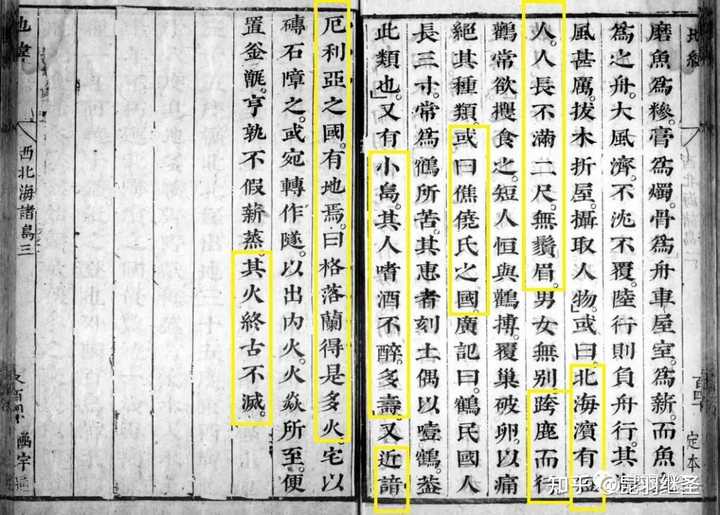 地緯
定本
磨魚為糝。膏為燭。骨為舟車屋室。為薪。而魚
為之舟。大風濟。不沈不覆。陸行則負舟行。其
風甚厲。拔木折屋。攝取人物。或曰。北海濱有
人。人長不滿二尺。無鬚眉。男女無別。跨鹿而行
鸛常欲攫食之。短人恒與鸛搏。覆巢破卵。以痛
絕其種類。或曰僬僥氏之國。廣記曰。鶴民國人
長三寸。常為鶴所苦。其惠者刻土偶以噎鶴。蓋
此類也。又有小島。其人嗜酒不醉。多壽。又近諳
厄利亞之國。有地焉。曰格落蘭得。是多火。宅以
磚石障之。或宛轉作隧。以出內火。火焱所至。便
置釜甑。亨孰不假薪蒸。其火終古不滅。
地緯
西北海諸島三
函宇
知乎